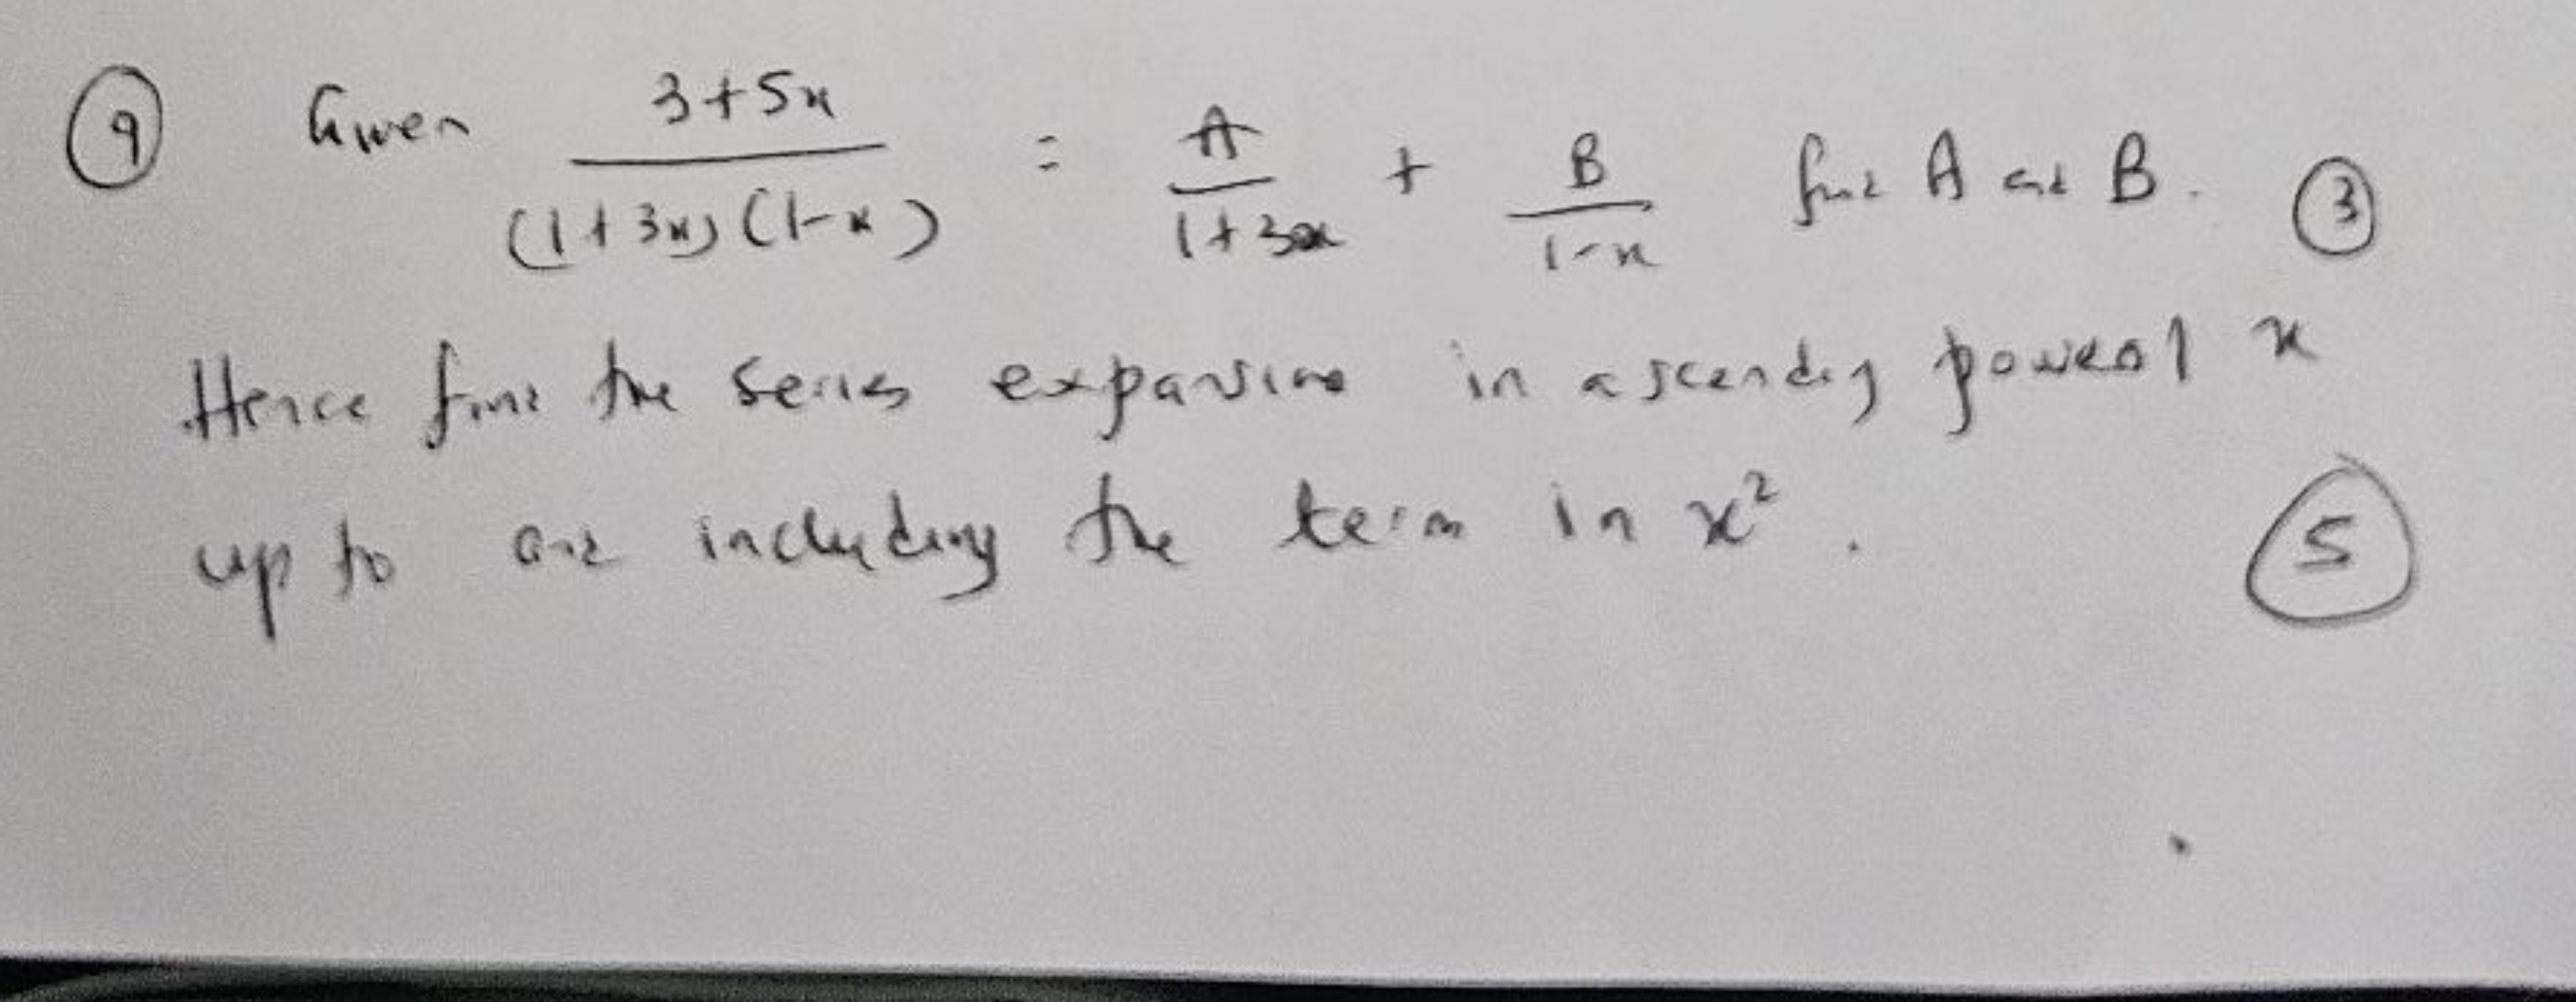 9 Given (3+5x)/((1+3x)(1-x)) = A/(1+3x) + B/(1-x) find A and B. 3
Hence find the series expansion in ascending power of x
up to and including the term in x². 5